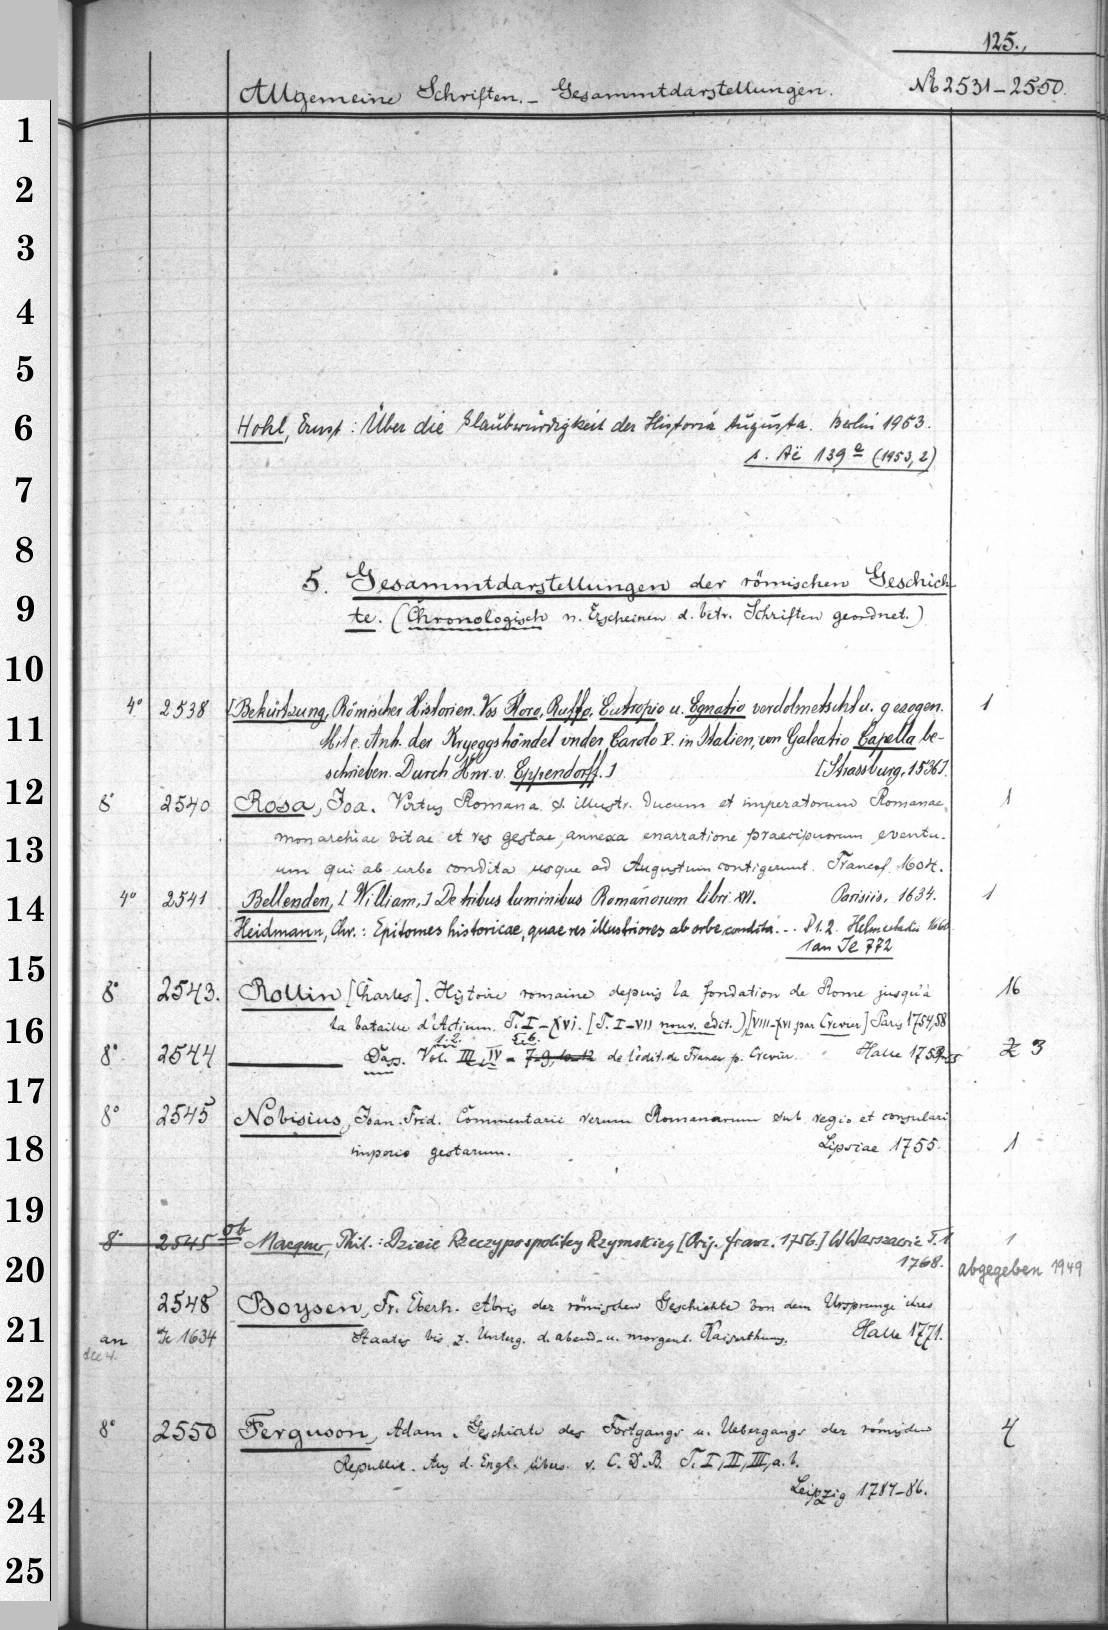 125.
Allgemeine Schriften. – Gesammtdarstellungen. № 2531–2550.
1
2
3
4
5
6
7
8
9
10
11
12
13
14
15
16
17
18
19
20
21
22
23
24
25
Hohl, Ernst: Über die Glaubwürdigkeit der Historia Augusta. Berlin 1953.
s. Aë 139 e (1953,2)
5. Gesammtdarstellungen der römischen Geschich-
te. (Chronologisch n. Erscheinen d. betr. Schriften geordnet.)
4° 2538 [Bekürtzung, Römischer Historien. Vos Floro, Ruffo, Eutropio u. Egnatio verdolmetscht u. gezogen. 1
Mit e. Anh. der Kryeggshändel vnder Carolo V. in Italien, von Galeatio Capella be-
schrieben. Durch Hnr. v. Eppendorff.] [Strassburg, 1536].
8° 2540 Rosa, Joa. Virtus Romana s. illustr. ducum et imperatorum Romanae 1
monarchiae vitae et res gestae, annexa enarratione praecipuorum eventu-
um qui ab urbe condita usque ad Augustum contigerunt. Francof. 1604.
4° 2541 Bellenden, [William,] De tribus luminibus Romanorum libri XVI. Parisiis, 1634. 1
Heidmann, Chr.: Epitomes historicae, quae res illustriores ab orbe condita... P 1.2. Helmestadii 1660
1 an Je 772
8° 2543. Rollin [Charles]. Histoire romaine depuis la fondation de Rome jusqu'à 16
la bataille d'Actium. T. I–XVI. [T. I–VII nouv. edit.) [VIII–XVI par Crevier] Paris 1754,58
1. 2. 5. 6.
8° 2544 Dass. Vol. III, IV – 7–9, 10–12 de l'édit. de France p. Crevier. Halle 1753–55 2 3
8° 2545 Nobisius, Joan. Frid. Commentarii rerum Romanarum sub regio et consulari
imperio gestarum. Lipsiae 1755. 1
8° 2545 ob Macquer, Phil.: Dzieie Rzeczypospolitey Rzymskiey [Orig. franz. 1756.] W Warszawie T. 1 1
1768. abgegeben 1949
2548 Boysen, Fr. Eberh. Abris der römischen Geschichte von dem Ursprunge ihres
an Je 1634 Staates bis z. Unterg. d. abend- u. morgenl. Kaiserthums. Halle 1771.
8° 2550 Ferguson, Adam. Geschichte des Fortgangs u. Uebergangs der römischen 4
Republik. Aus d. Engl. übers. v. C. D. B. T. I, II, III, a. b.
Leipzig 1784–86.